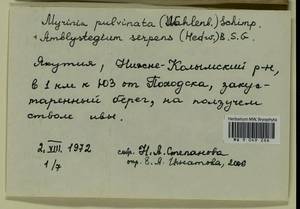 Myrinia pulvinata (Wahlenb.) Schimp.
+ Amblystegium serpens (Hedw.) B.S.G.
Якутия, Нижне-Колымский р-н,
в 1 км к ЮЗ от Походска, закус-
таренный берег, на ползучем
стволе ивы.
2.VIII.1972
1/7
собр. Н.А.Степанова
опр. Е.А. Игнатова, 2000
Herbarium MW, Bryophyta